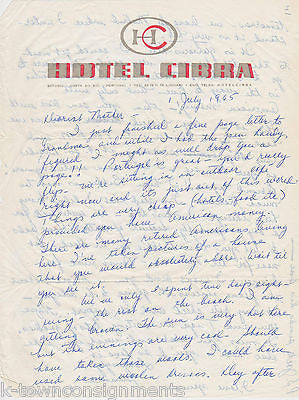 HC
HOTEL CIBRA
1 July 1965
Dearest Mother -
I just finished a five page letter to
Grandma and while I had the pen handy,
figured I might as well drop you a
page !! Portugal is great - you'd really
flip. We're sitting in an outdoor café
right now and its just out of this world.
Things are very cheap (hotels-food etc)
provided you have American money.
There are many retired Americans living
here. I've taken pictures of a house
that you would absolutely adore. Wait till
you see it.
We've only spent two days sight-
seeing - the rest on the beach. I am
getting brown. The sun is very hot here
but the evenings are very cool. Should
have taken those wools. I could have
used some woolen dresses. Day after
© k-townconsignments